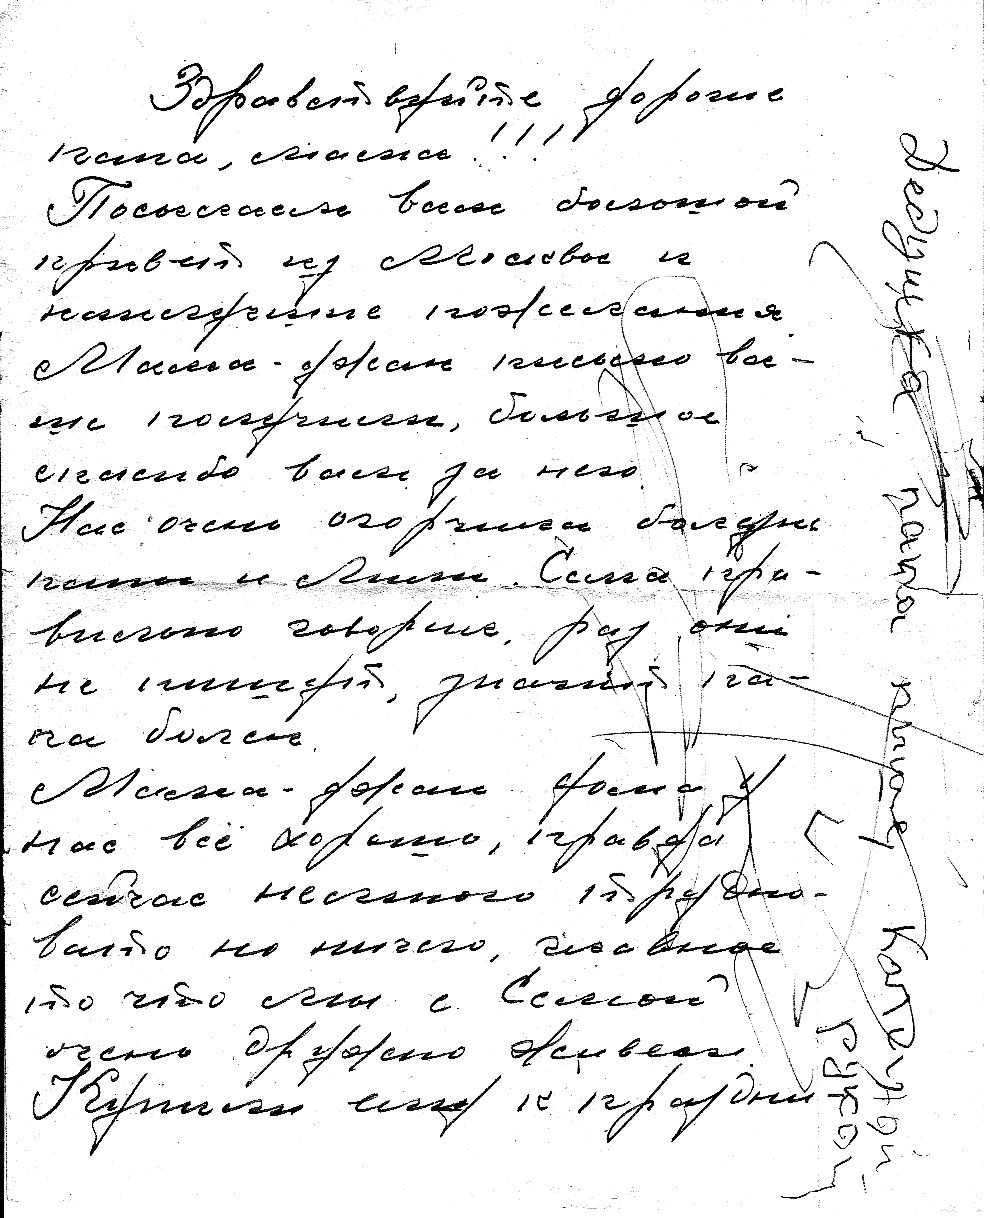 Здравствуйте дорогие
папа, мама!!!
Посылаем вам большой
привет из Москвы и
наилучшие пожелания.
Мама-джан письмо ва-
ше получили, большое
спасибо вам за него.
Нас очень огорчила болезнь
папы и Сама пра-
вильно говорит, раз они
не пишут, значит па-
па болен.
Мама-джан дома у
нас всё хорошо, правда
сейчас немного трудно-
вато но ничего, главное
то что мы с Самой
очень дружно живем.
Купили ему к празднику
Дедушка, папа пишет Катиной
рукой